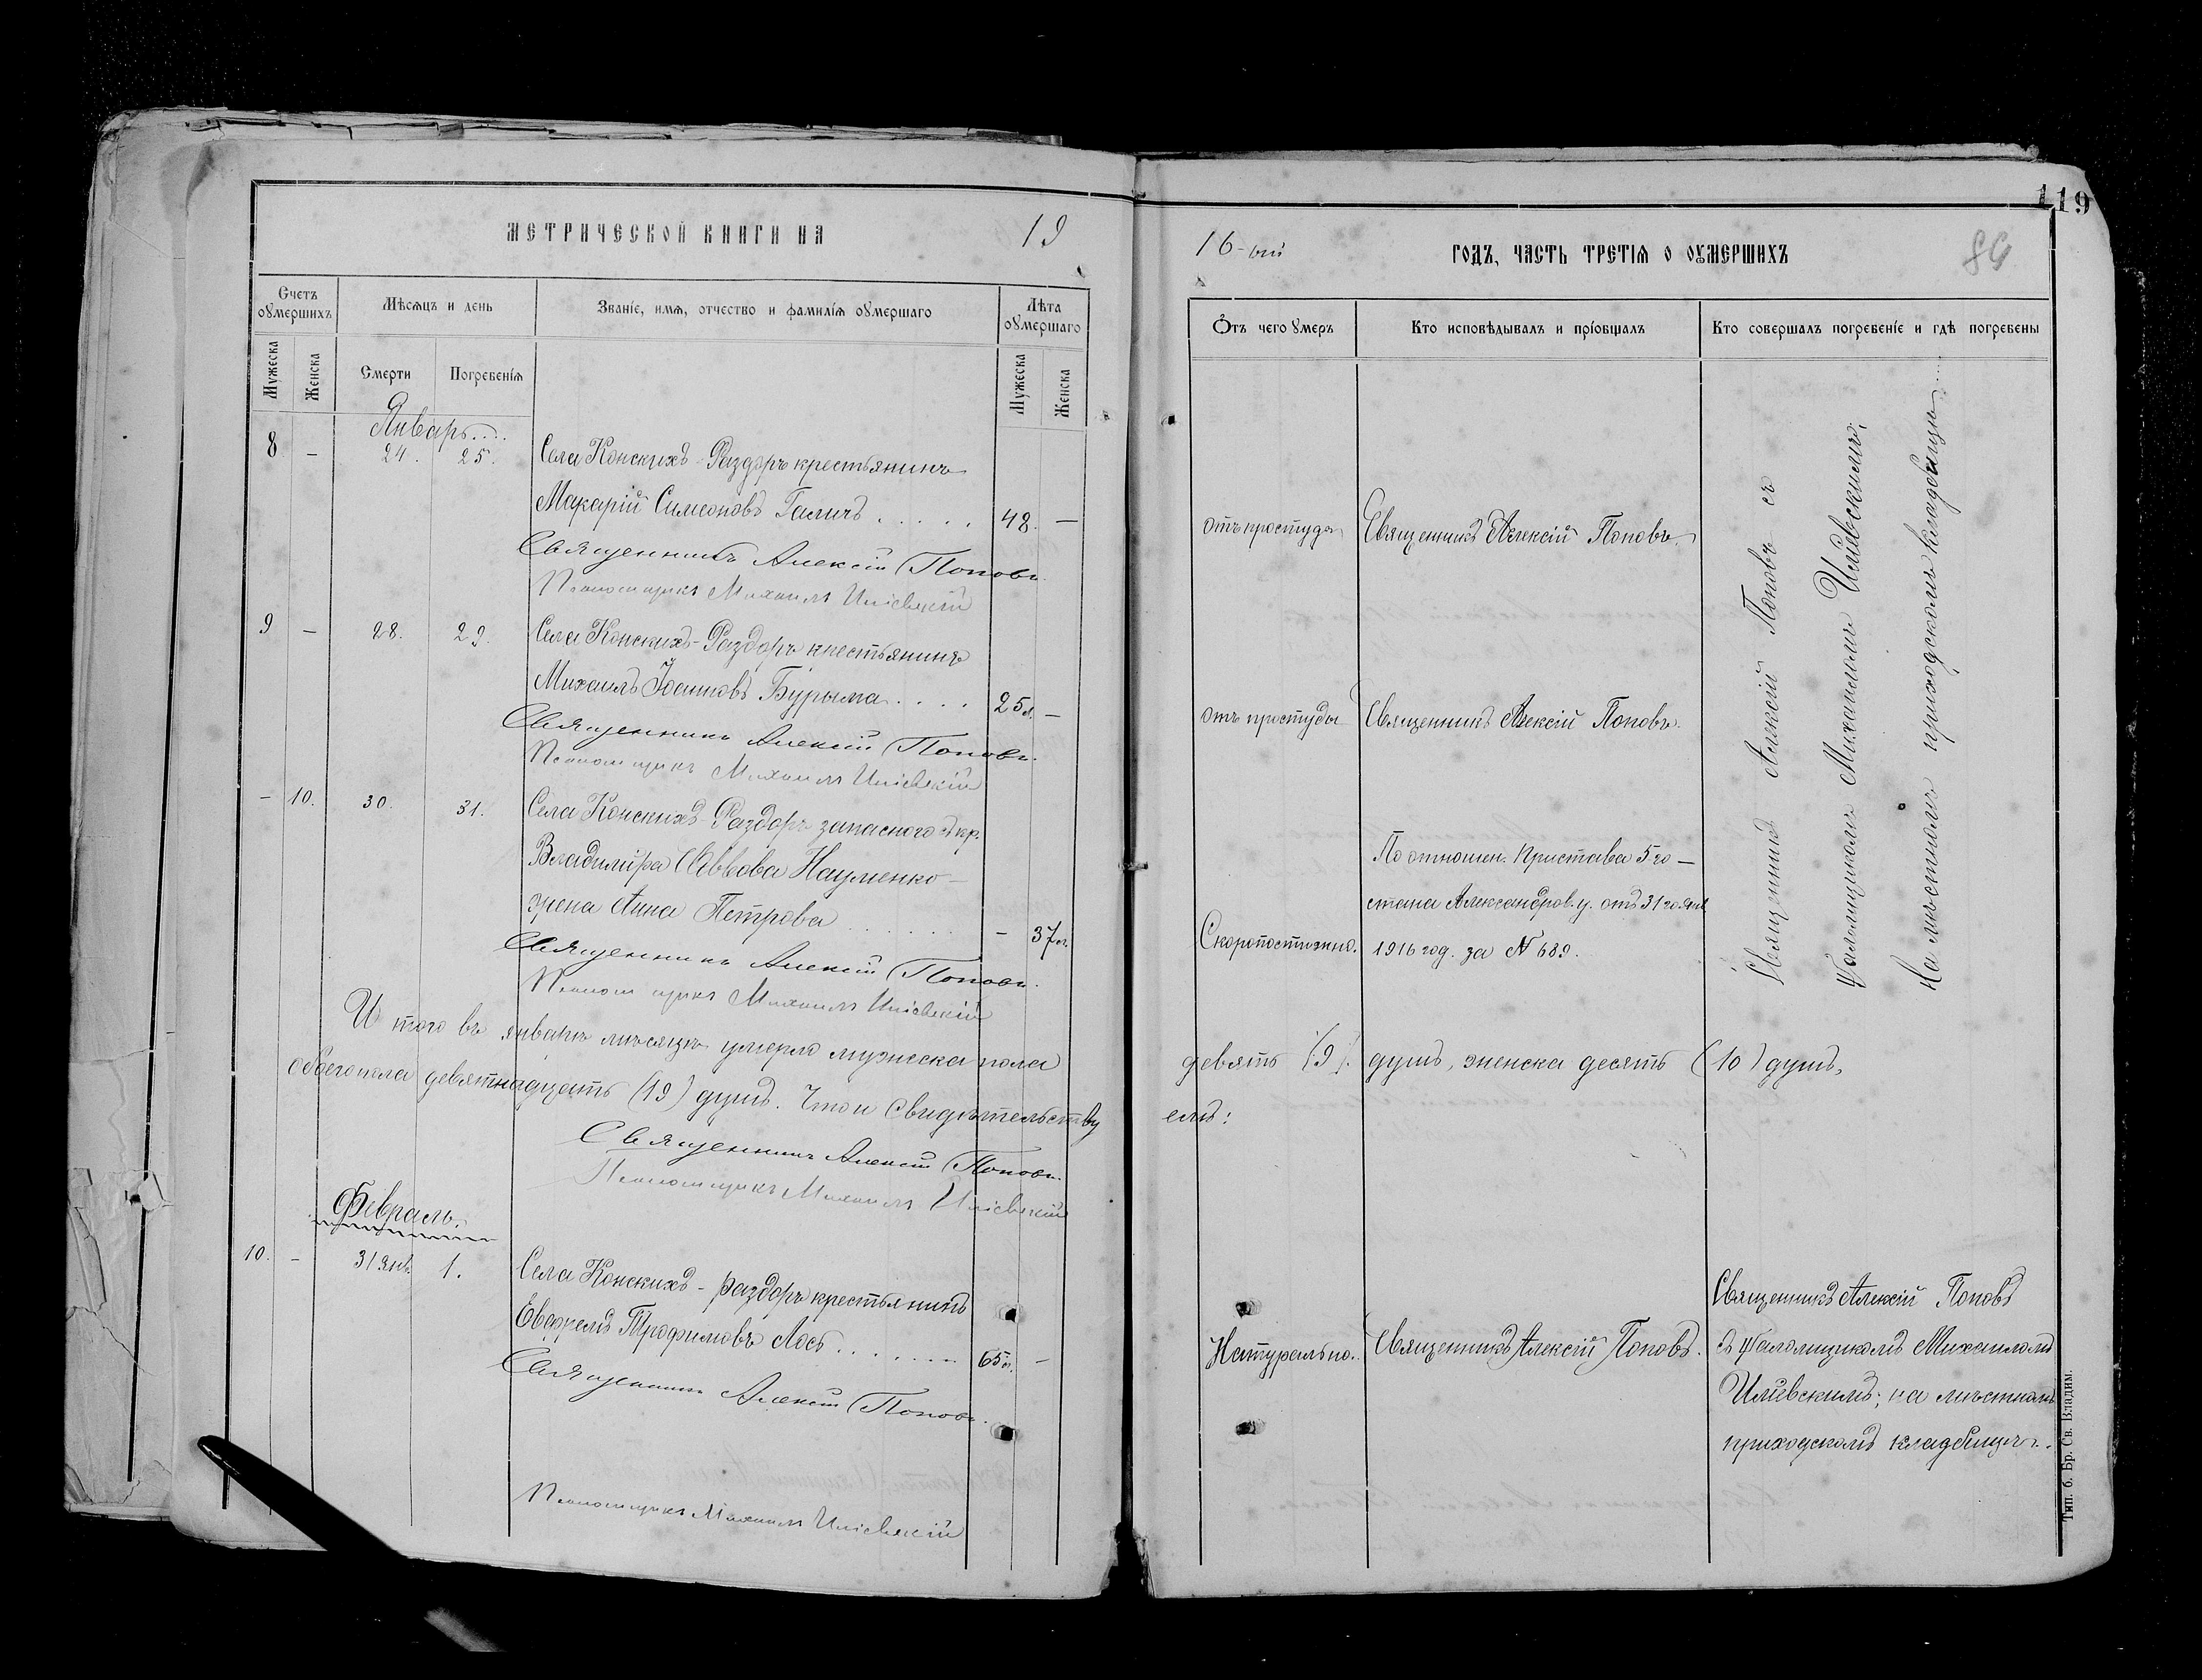 МЕТРИЧЕСКОЙ КНИГИ НА 19
Счетъ оумершихъ
Мѣсяцъ и день
Званіе, имя, отчество и фамилія оумершаго
Лѣта оумершаго
Мужеска
Женска
Смерти
Погребенія
Мужеска
Женска
Январь....
8. – 24. 25. Села Конскихъ-Раздоръ крестьянинъ
Макарій Симеоновъ Галичъ . . . . . 48. –
Священникъ Алексій Поповъ.
Псаломщикъ Михаилъ Иліевскій
9 – 28. 29. Села Конскихъ-Раздоръ крестьянинъ
Михаилъ Іоанновъ Бурыма . . . . 25 л. –
Священникъ Алексій Поповъ.
Псаломщикъ Михаилъ Иліевскій
– 10. 30. 31. Села Конскихъ-Раздоръ запасного
Владиміра Саввова Науменко –
жена Анна Петрова . . . . . . – 37 л.
Священникъ Алексій Поповъ.
Псаломщикъ Михаилъ Иліевскій
И того въ январѣ мѣсяцѣ умерло мужеска пола
обоего пола девятнадцать (19) душъ. Что и свидѣтельству
Священникъ Алексій Поповъ.
Псаломщикъ Михаилъ Иліевскій
Февраль.
10. – 31 янв. 1. Села Конскихъ-Раздоръ крестьянинъ
Трофимовъ Лось . . . . . . . 65 л. –
Священникъ Алексій Поповъ.
Псаломщикъ Михаилъ Иліевскій
119
16-ый ГОДЪ, ЧАСТЬ ТРЕТІЯ О ОУМЕРШИХЪ
Отъ чего умеръ
Кто исповѣдывалъ и пріобщалъ
Кто совершалъ погребеніе и гдѣ погребены
отъ простуды Священникъ Алексій Поповъ.
отъ простуды Священникъ Алексій Поповъ.
По отношен. Пристава 5 го –
стана Александров. у. отъ 31 го янв.
Скоропостижно. 1916 год. за № 689.
Священникъ Алексій Поповъ съ
Псаломщикомъ Михаиломъ Иліевскимъ;
На мѣстномъ приходскомъ кладбищѣ....
девять (9). душъ, женска десять (10) душъ,
емъ:
Натурально. Священникъ Алексій Поповъ.
Священникъ Алексій Поповъ
съ Псаломщикомъ Михаиломъ
Иліевскимъ; на мѣстномъ
приходскомъ кладбищѣ.
Тип. б. Бр. Св. Владим.